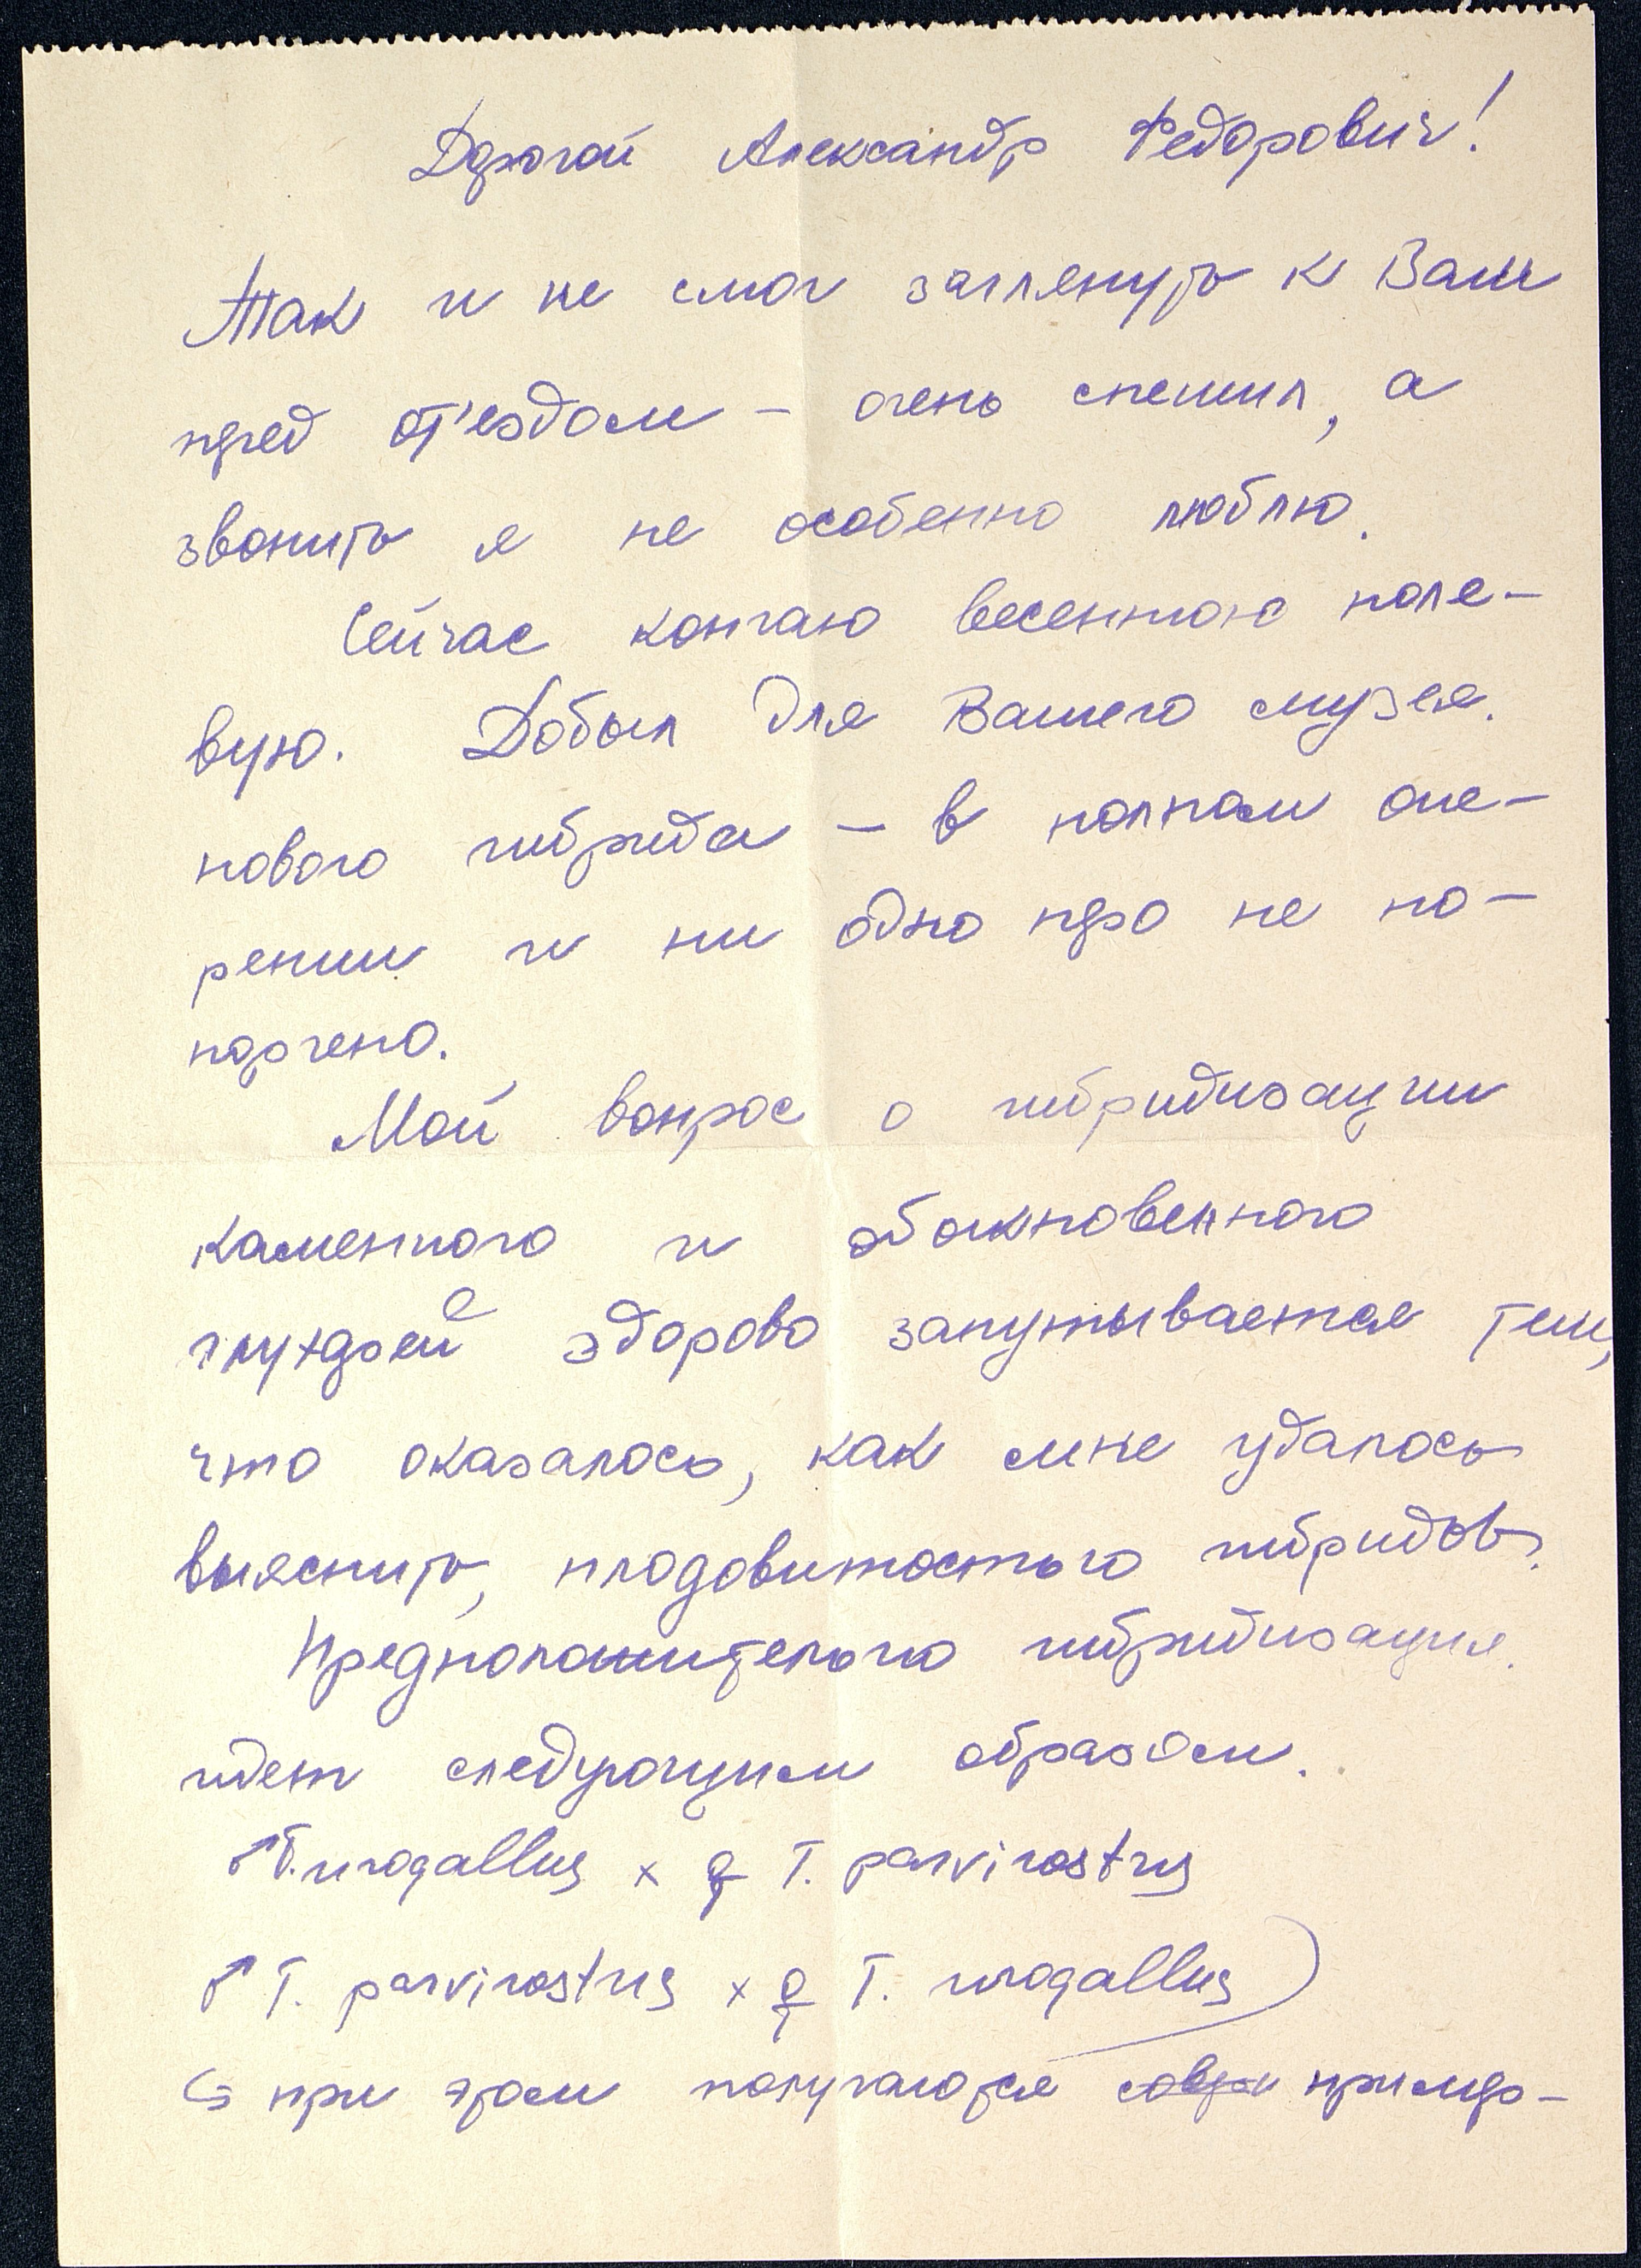 Дорогой Александр Федорович!
Так и не смог заглянуть к Вам
пред от'ездом – очень спешил, а
звонить я не особенно люблю.
Сейчас кончаю весеннюю поле-
вую. Добыл для Вашего музея
нового гибрида – в полном опе-
рении и ни одно перо не по-
порчено.
Мой вопрос о гибридизации
каменного и обыкновенного
глухарей здорово запутывается тем,
что оказалось, как мне удалось
выяснить, плодовитостью гибридов.
Предположительно гибридизация
идет следующим образом.
♂ T. urogallus × ♀ T. parvirostris
♂ T. parvirostris × ♀ T. urogallus)
при этом получаются